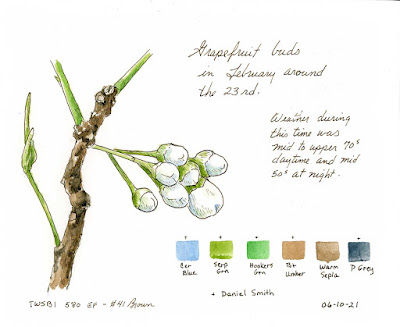 Grapefruit buds
in February around
the 23rd.
Weather during
this time was
mid to upper 70s
daytime and mid
50s at night.
+ + + + + +
Cer Blue
Serp Grn
Hookers Grn
Bt Umber
Warm Sepia
P Grey
+ Daniel Smith
TWSBI 580 EF - #41 Brown
06-10-21